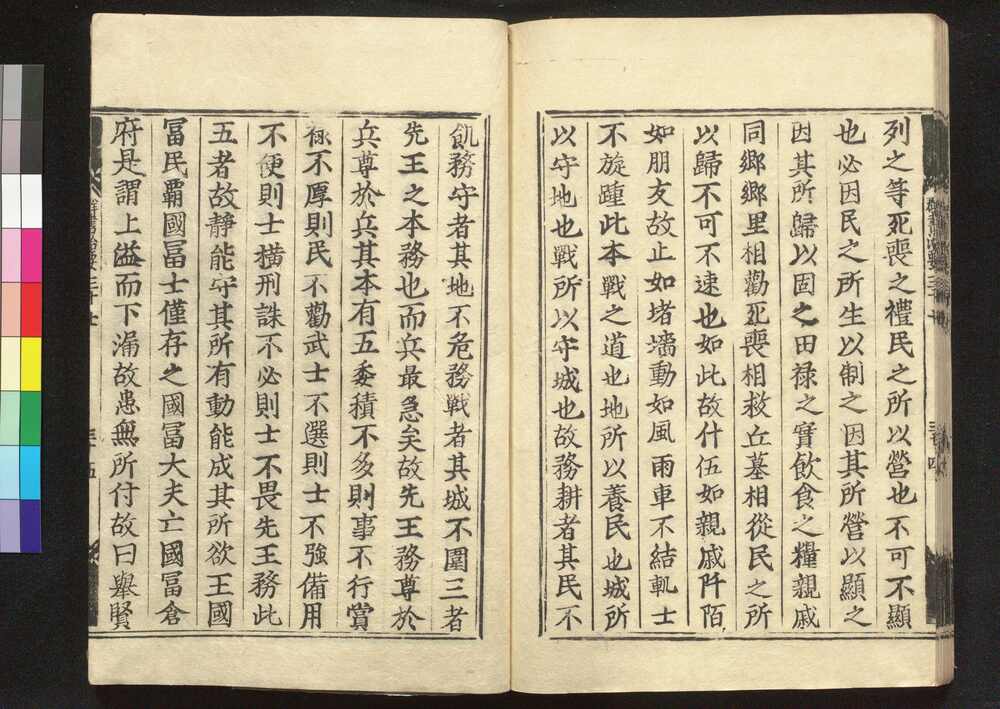 列之等死喪之禮民之所以營也不可不顯
也必因民之所生以制之因其所營以顯之
因其所歸以固之田祿之實飲食之糧親戚
同鄉鄉里相勸死喪相救丘墓相從民之所
以歸不可不速也如此故什伍如親戚阡陌
如朋友故止如堵墻動如風雨車不結軌士
不旋踵此本戰之道也地所以養民也城所
以守地也戰所以守城也故務耕者其民不
飢務守者其地不危務戰者其城不圍三者
先王之本務也而兵最急矣故先王務尊於
兵尊於兵其本有五委積不多則事不行賞
祿不厚則民不勸武士不選則士不強備用
不便則士橫刑誅不必則士不畏先王務此
五者故靜能守其所有動能成其所欲王國
冨民霸國冨士僅存之國冨大夫亡國冨倉
府是謂上溢而下漏故患無所付故曰舉賢